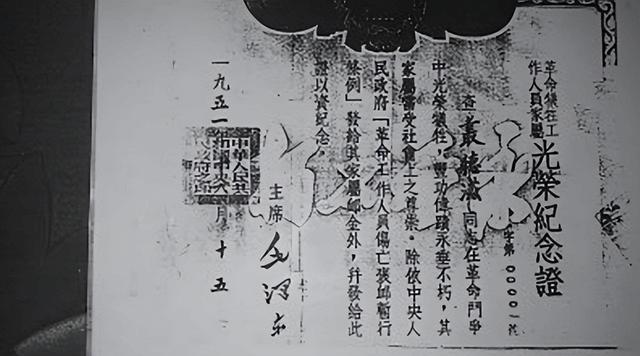 革命犧牲工
作人員家屬
光榮紀念證
字第00001號
查叢聽滋同志在革命鬥爭
中光榮犧牲，豐功偉蹟永垂不朽，其
家屬當受社會上之尊崇。除依中央人
民政府「革命工作人員傷亡褒卹暫行
條例」發給其家屬卹金外，幷發給此
證以資紀念。
主席 毛澤东
一九五一
月十五
中華人民共
和國中央人
民政府之印